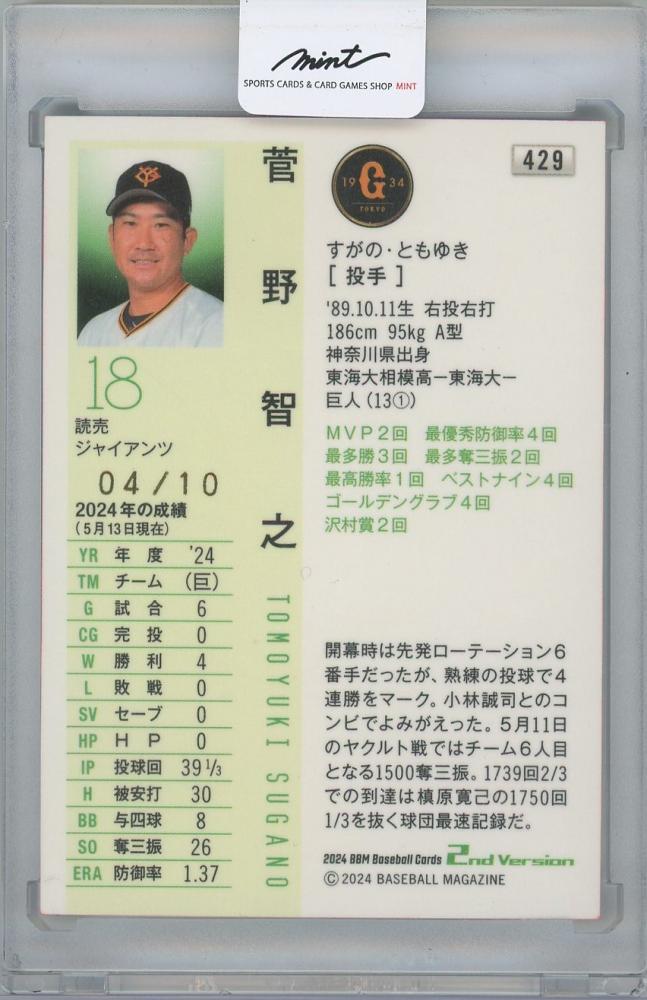 mint
SPORTS CARDS & CARD GAMES SHOP MINT
429
菅野智之
TOMOYUKI SUGANO
19 G 34
TOKYO
すがの・ともゆき
[ 投手 ]
'89.10.11生 右投右打
186cm 95kg A型
神奈川県出身
東海大相模高ー東海大ー
巨人(13①)
MVP2回 最優秀防御率4回
最多勝3回 最多奪三振2回
最高勝率1回 ベストナイン4回
ゴールデングラブ4回
沢村賞2回
18
読売
ジャイアンツ
04/10
2024年の成績
(5月13日現在)
YR 年度 '24
TM チーム (巨)
G 試合 6
CG 完投 0
W 勝利 4
L 敗戦 0
SV セーブ 0
HP HP 0
IP 投球回 39 1/3
H 被安打 30
BB 与四球 8
SO 奪三振 26
ERA 防御率 1.37
開幕時は先発ローテーション6
番手だったが、熟練の投球で4
連勝をマーク。小林誠司とのコ
ンビでよみがえった。5月11日
のヤクルト戦ではチーム6人目
となる1500奪三振。1739回2/3
での到達は槙原寛己の1750回
1/3を抜く球団最速記録だ。
2024 BBM Baseball Cards 2nd Version
©2024 BASEBALL MAGAZINE